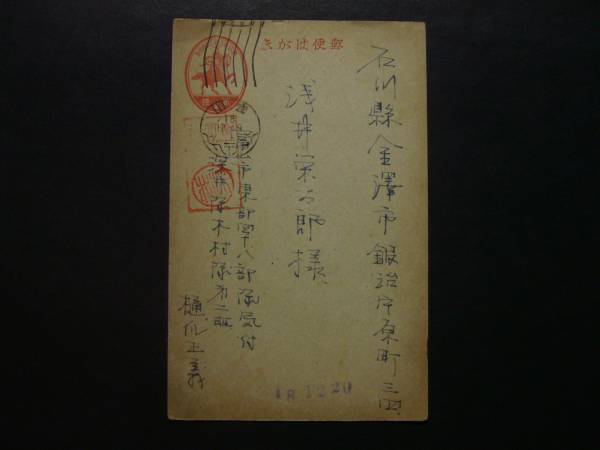 郵便はがき
石川縣金澤市鍛治片原町三四
浅井栄次郎様
富山市東部四十八部隊気付
深井隊木村隊第二班
樋爪正義
18 12 20